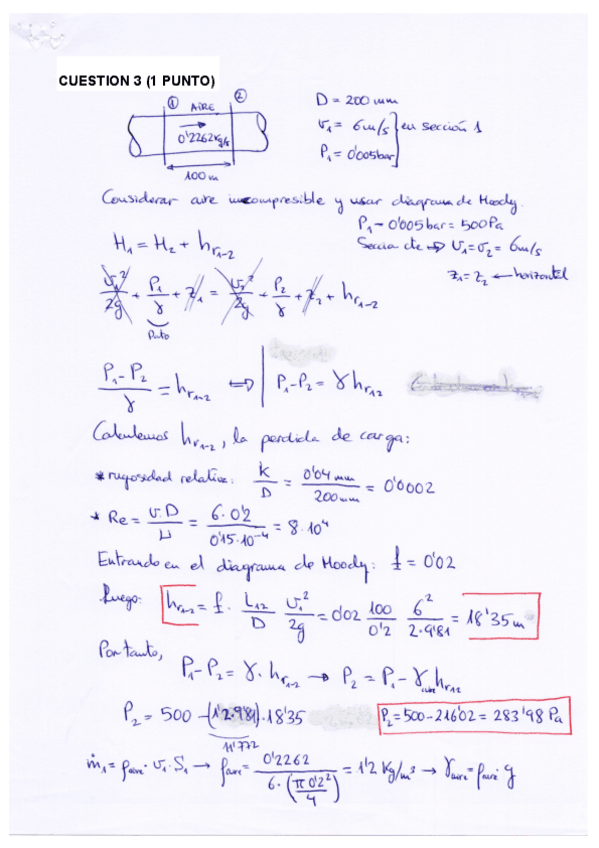 CUESTION 3 (1 PUNTO)
① AIRE ②
0'2262 Kg/s
100 m
D = 200 mm
v₁ = 6 m/s } en sección 1
P₁ = 0'005 bar
Considerar aire incompresible y usar diagrama de Moody.
P₁ → 0'005 bar = 500 Pa
H₁ = H₂ + hr₁₋₂
Sección cte ⇒ v₁ = v₂ = 6 m/s
z₁ = z₂ ← horizontal
v₁²/2g + P₁/γ + z₁ = v₂²/2g + P₂/γ + z₂ + hr₁₋₂
Dato
(P₁ - P₂)/γ = hr₁₋₂ ⇔ P₁ - P₂ = γ hr₁₂
Calculemos hr₁₋₂, la perdida de carga:
* rugosidad relativa: K/D = 0'04 mm / 200 mm = 0'0002
* Re = v·D/ν = 6·0'2 / 0'15·10⁻⁴ = 8·10⁴
Entrando en el diagrama de Moody: f = 0'02
Luego: hr₁₋₂ = f · L₁₂/D v₁²/2g = 0'02 100/0'2 6²/2·9'81 = 18'35 m
Por tanto,
P₁ - P₂ = γ · hr₁₋₂ → P₂ = P₁ - γaire hr₁₂
P₂ = 500 - (1'2·9'81)·18'35
P₂ = 500 - 216'02 = 283'98 Pa
11'772
ṁ₁ = ρaire · v₁ · S₁ → ρaire = 0'2262 / 6·(π 0'2²/4) = 1'2 Kg/m³ → γaire = ρaire · g